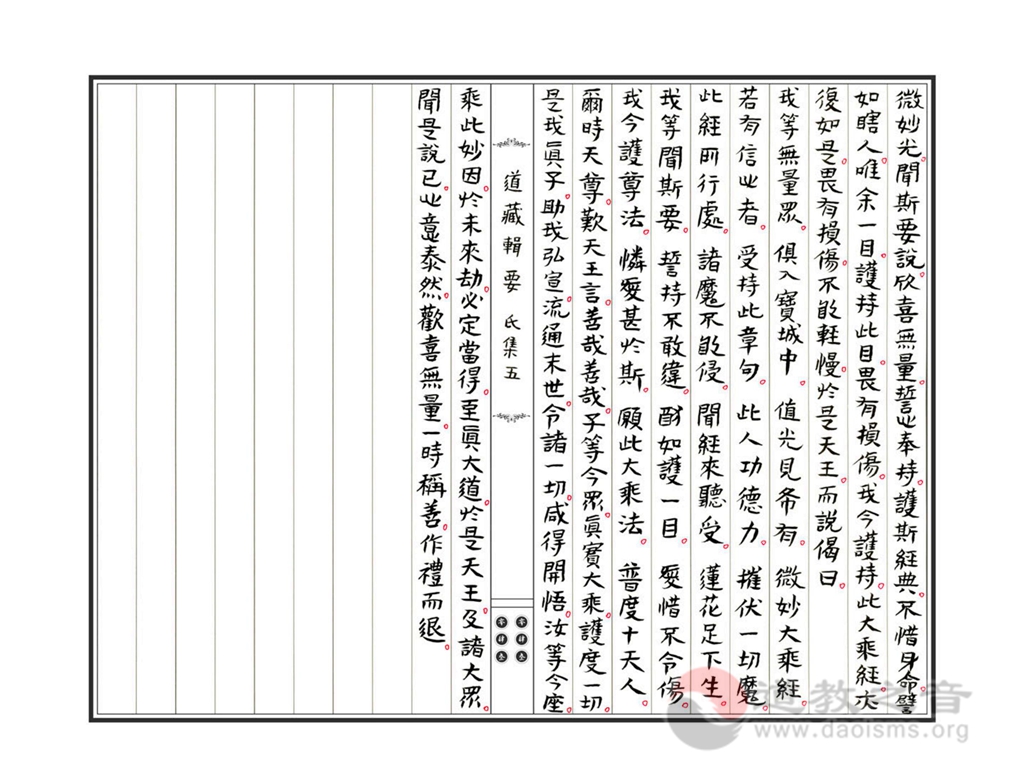 微妙光。聞斯要說。欣喜無量。誓心奉持。護斯經典。不惜身命。譬
如瞎人。唯余一目。護持此目。畏有損傷。我今護持。此大乘經。亦
復如是。畏有損傷。不敢輕慢。於是天王。而說偈曰。
我等無量眾 俱入寶城中。 值光見希有。 微妙大乘經
若有信心者。 受持此章句。 此人功德力。 摧伏一切魔。
此經所行處。 諸魔不能侵。 聞經來聽受。 蓮花足下生。
我等聞斯要。 誓持不敢違。 酧如護一目。 愛惜不令傷。
我今護尊法。 憐愛甚於斯。 願此大乘法。 普度十天人
爾時天尊。歎天王言。善哉善哉。子等今眾。真實大乘。護度一切
是我真子。助我弘宣。流通末世。令諸一切。咸得開悟。汝等今座
道藏輯要 氐集五
乘此妙因。於未來劫。必定當得。至真大道。於是天王。及諸大眾。
聞是說已。心意泰然。歡喜無量。一時稱善。作禮而退。
道教之音
www.daoisms.org